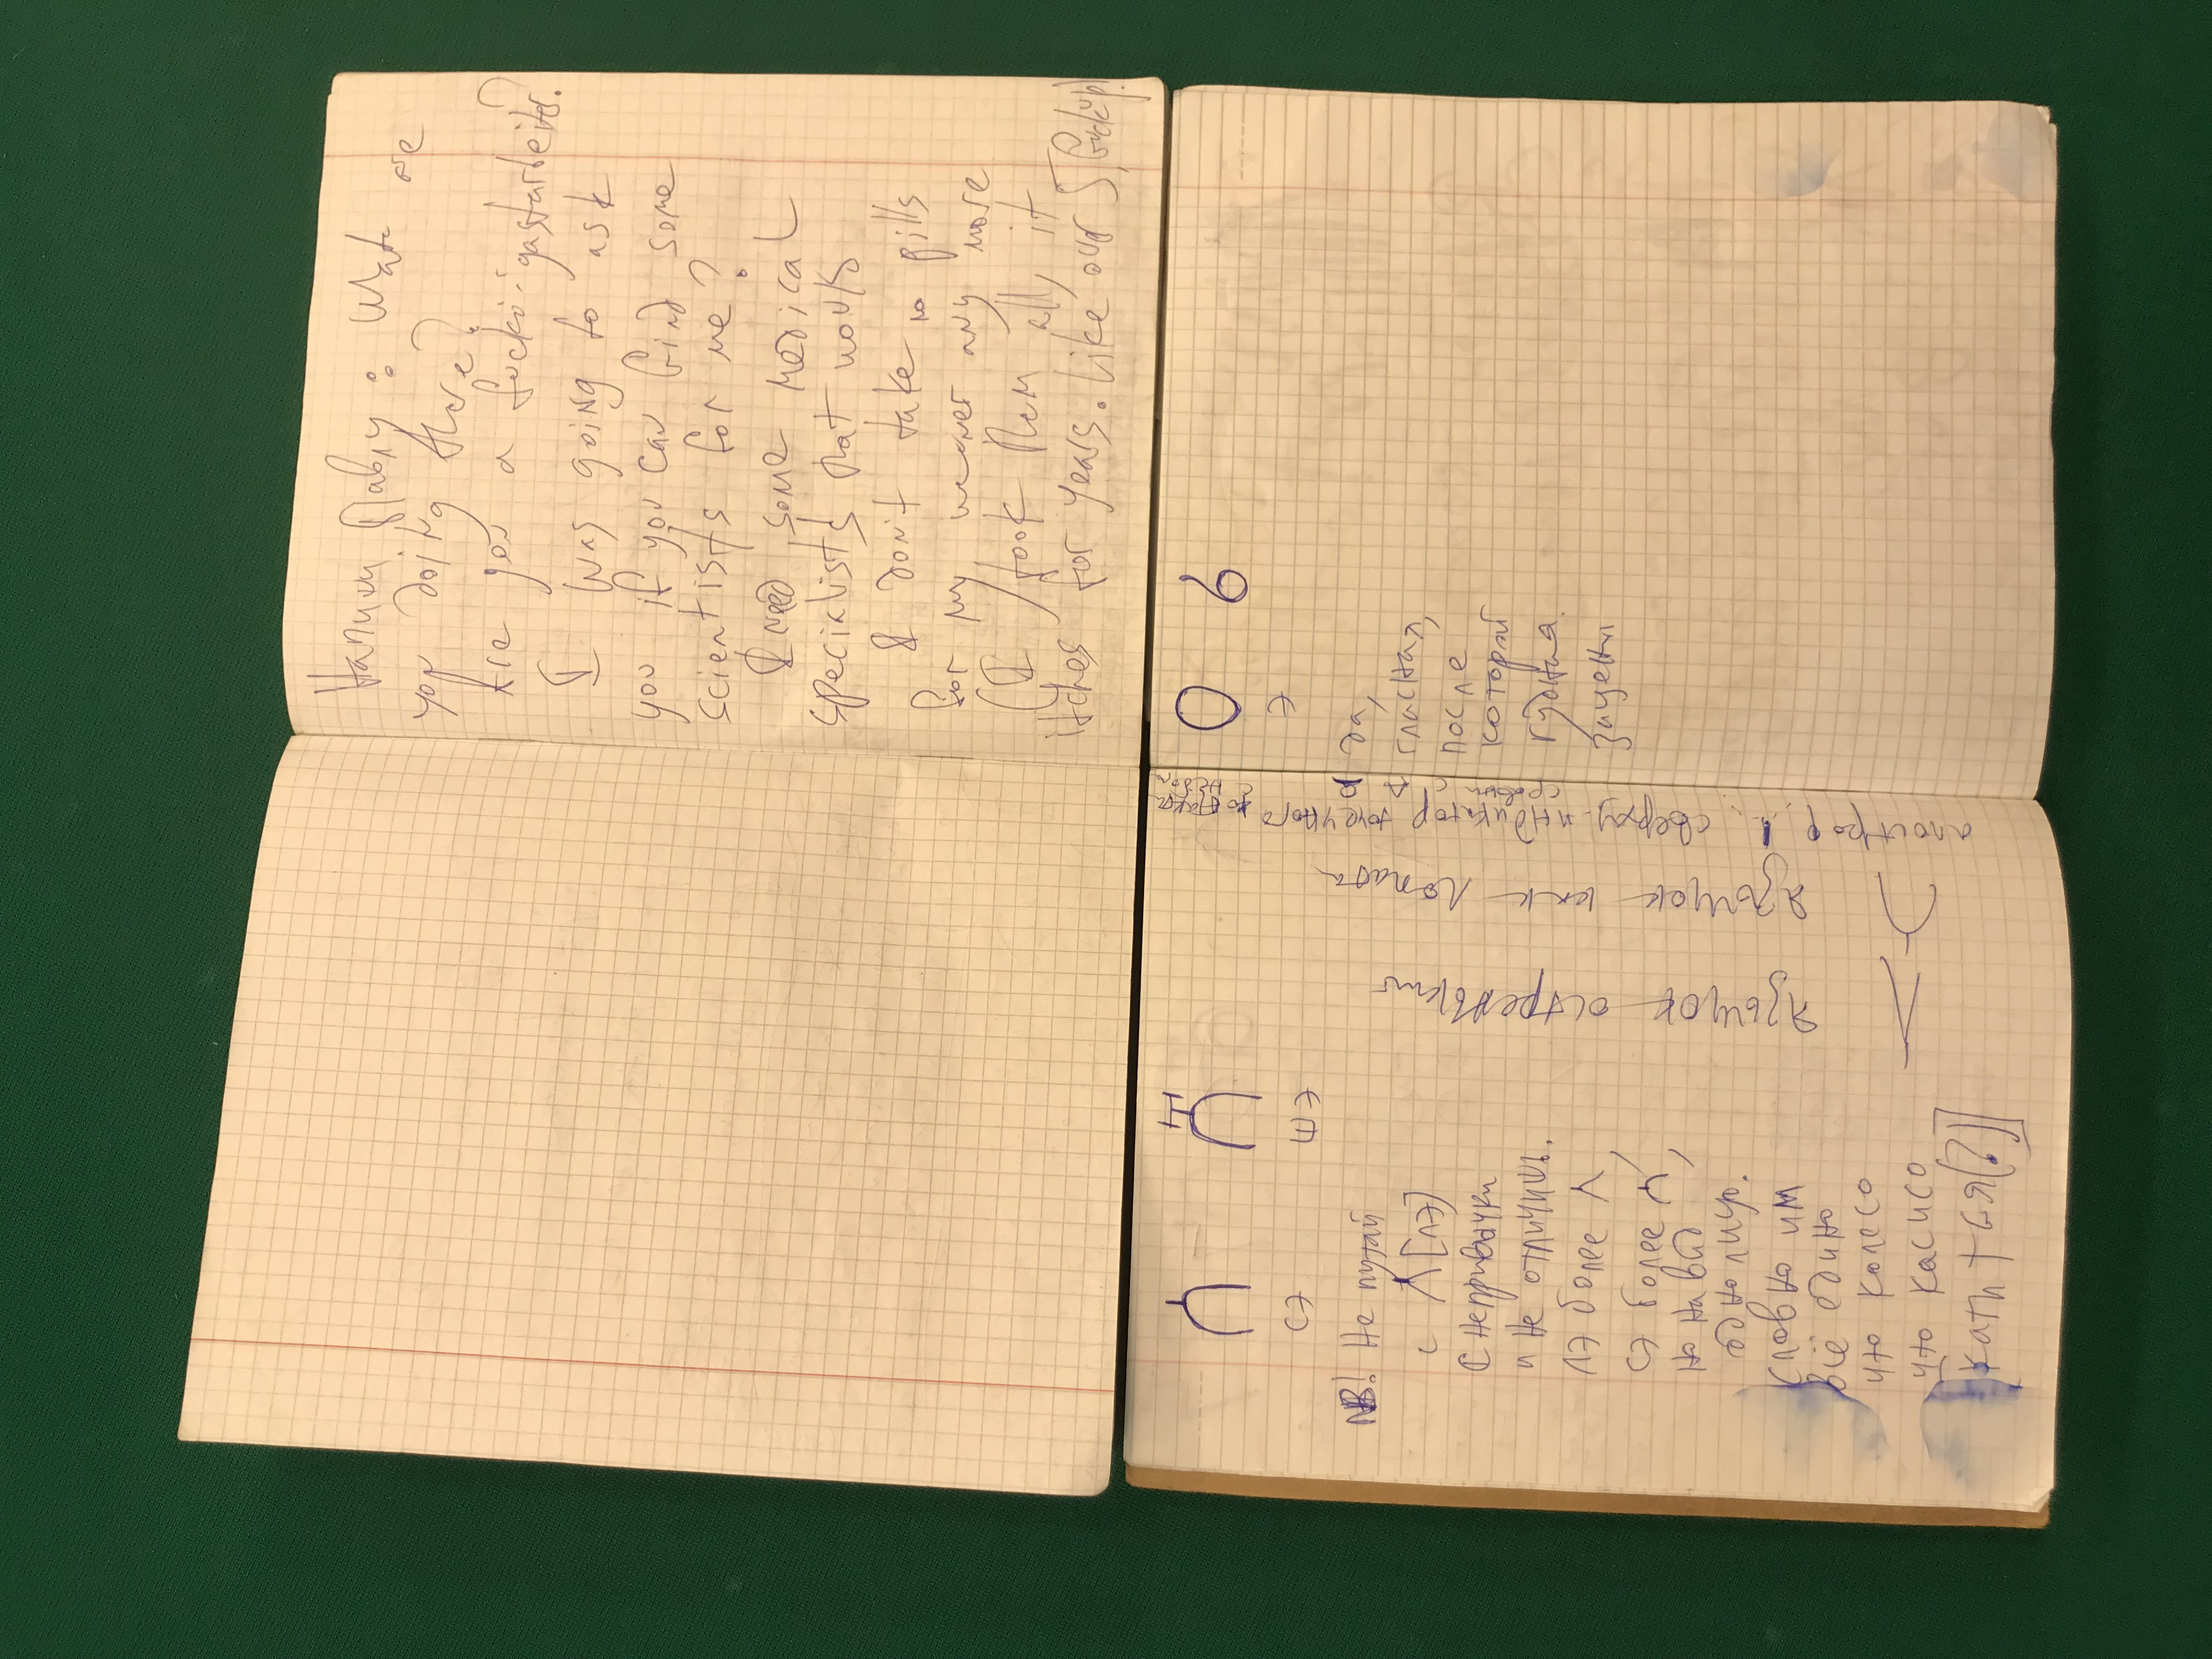 Напиши Павлу: Wat are
you doing there?
Are you a gastarbeiter?
I was going to ask
you if you can find some
scientists for me?
I need some medical
specialists that would
I don't take no pills
for my any more
(I took them all, it
itches for years. Like our
СЭ ШЭ
NB! Не путай
с Λ [лэ]
С непривычки
и не отличишь.
ЛЭ более Λ,
СЭ более
но на вид
одно лицо.
Словно им
всё едино
что колесо
что касисо
[кати + (?)]
Язычок остренький
Язычок как лопата
апостроф! сверху - индикатор точечного контакта
сравни с
О 6
Э
да,
гласная,
после
которой
губная
зацени